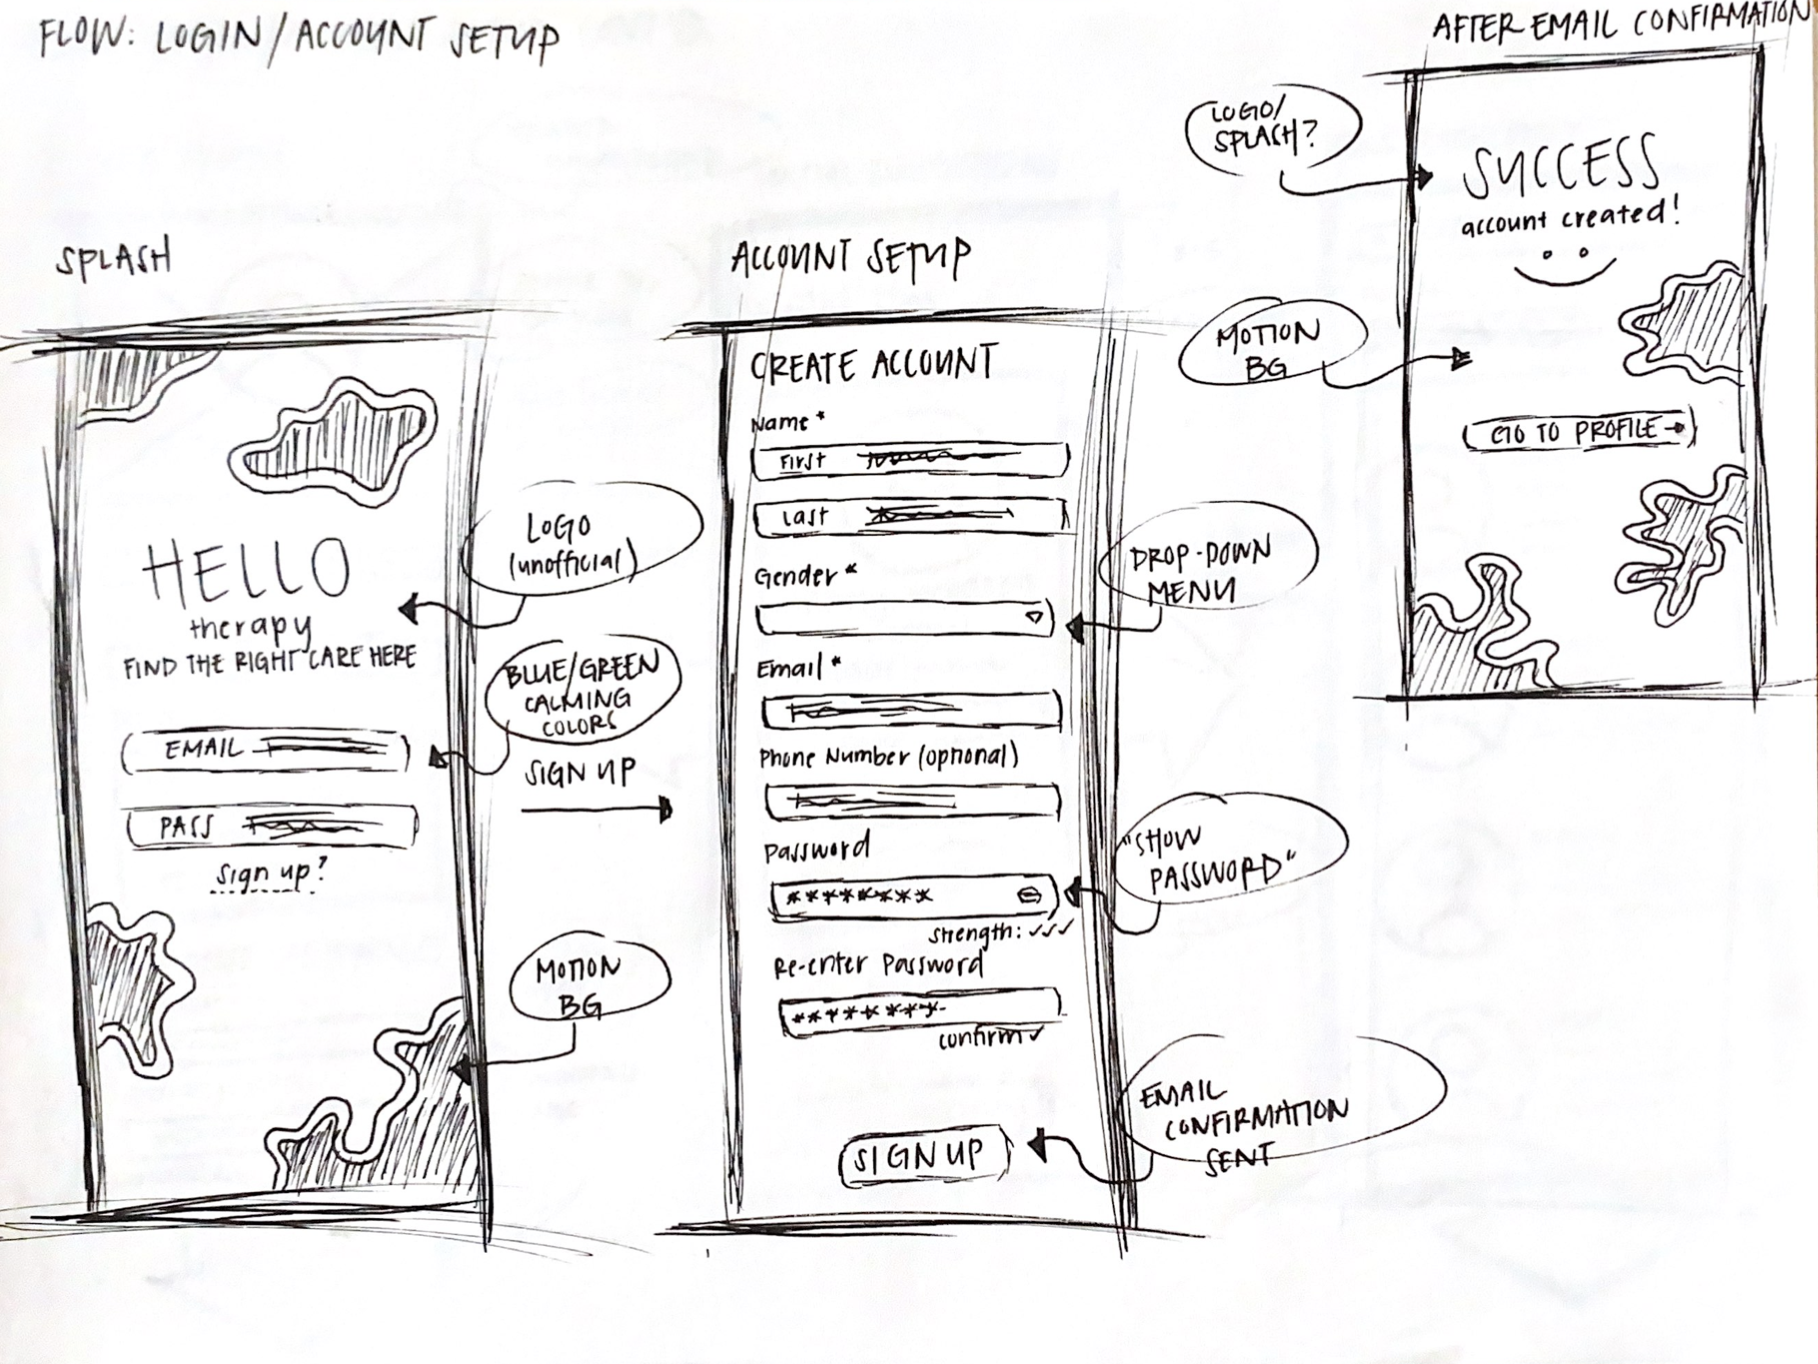 FLOW: LOGIN/ACCOUNT SETUP
SPLASH
HELLO
therapy
FIND THE RIGHT CARE HERE
EMAIL
PASS
sign up?
LOGO
(unofficial)
BLUE/GREEN
CALMING
COLORS
SIGN UP
MOTION
BG
ACCOUNT SETUP
CREATE ACCOUNT
Name *
First
Last
Gender *
Email *
Phone Number (optional)
Password
********
strength: ✓✓✓
Re-enter Password
********
confirm ✓
SIGN UP
DROP-DOWN
MENU
"SHOW
PASSWORD"
EMAIL
CONFIRMATION
SENT
AFTER EMAIL CONFIRMATION
LOGO/
SPLASH?
SUCCESS
account created!
MOTION
BG
GO TO PROFILE →